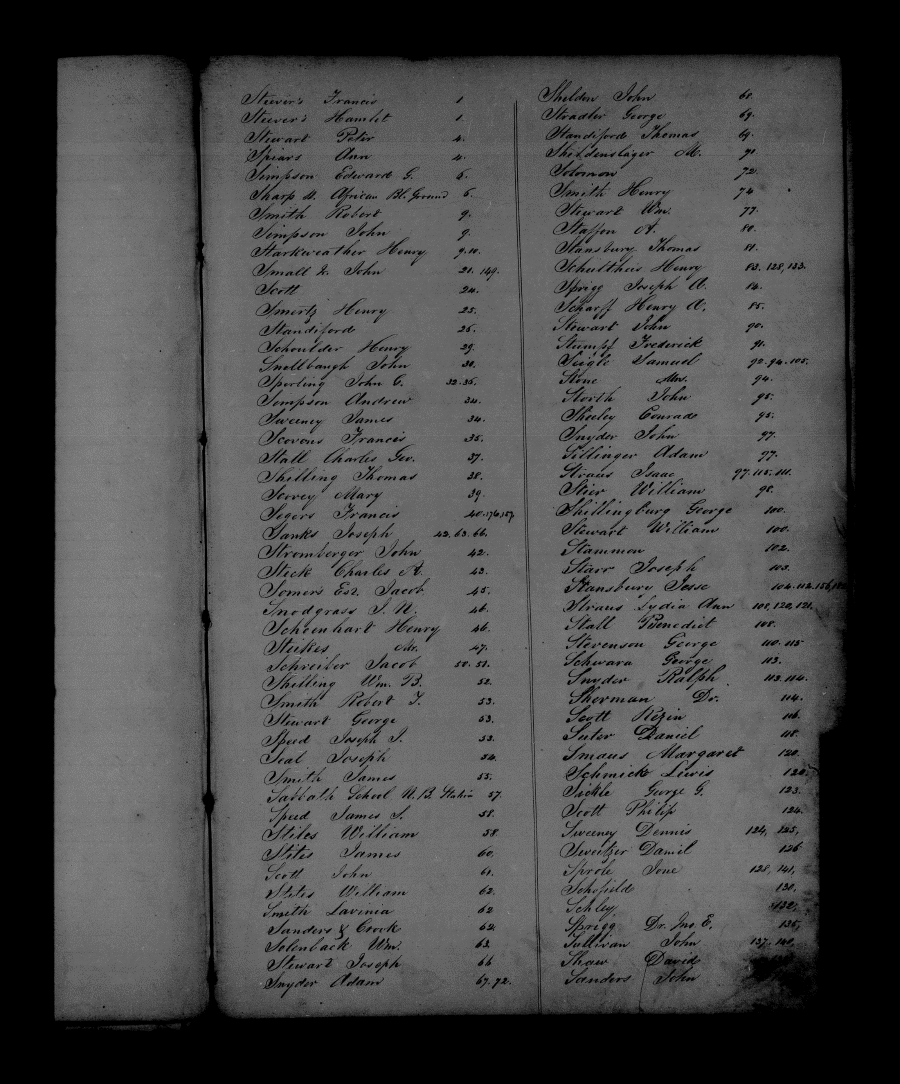 Stiever's Francis 1.
Stiever's Hamlet 1.
Stewart Peter 4.
Spiars Ann 4.
Simpson Edward G. 6.
Sharp St. African Bl. Ground 6.
Smith Robert 9.
Simpson John 9.
Starkweather Henry 9.10.
Small & John 21. 149.
Scott 24.
Smertz Henry 25.
Standiford 26.
Schoulder Henry 29.
Snellbaugh John 30.
Sperling John G. 32.36.
Simpson Andrew 34.
Sweeney James 34.
Scovons Francis 35.
Stall Charles Geo. 37.
Shilling Thomas 38.
Scovey Mary 39.
Segers Francis 40.176,157.
Sanks Joseph 42.63.66.
Stromberger John 42.
Steck Charles A. 43.
Somers Esq. Jacob 45.
Snodgrass J. N. 46.
Schoenhart Henry 46.
Steikes 47.
Schreiber Jacob 50.52.
Shilling Wm. B. 52.
Smith Robert T. 53.
Stewart George 53.
Speed Joseph J. 53.
Seal Joseph 54.
Smith James 55.
Sabbath School U.B. Station 57.
Speed James S. 58.
Stiles William 58.
Stites James 60.
Scott John 61.
Stites William 62.
Smith Lavinia 62
Sanders & Crook 62.
Selenback Wm. 63.
Stewart Joseph 66
Snyder Adam 67.72.
Shelden John 68.
Stradler George 69.
Standiford Thomas 69.
Shildenslager M. 71
Solomon 72.
Smith Henry 74
Stewart Wm. 77.
Staffon A. 80.
Stansbury Thomas 81.
Schultheis Henry 83.128,133.
Sprigg Joseph A. 84.
Scharff Henry A. 85.
Stewart John 90.
Stumpf Frederick 91.
Seigle Samuel 92.94.105.
Stone Mrs. 94.
Storth John 95.
Sheeley Conrade 95.
Snyder John 97.
Sillinger Adam 97.
Straus Isaac 97.115.111.
Stier William 98.
Shillingburg George 100.
Stewart William 100.
Stammon 102.
Starr Joseph 103.
Stansbury Jesse 104.112.156,
Straus Lydia Ann 108,120,121.
Stall Benedict 108.
Stevenson George 110.115
Schwara George 113.
Snyder Ralph 113.114.
Sherman Dr. 114.
Scott Rezin 116.
Suter Daniel 118.
Smaus Margaret 120.
Schmick Lewis 120.
Sickle George G. 123.
Scott Philip 124.
Sweeney Dennis 124, 125,
Sweitzer Daniel 126
Sprole Jone 128, 141,
Schofield 130,
Schley 132,
Sprigg Dr. Jno. E. 135,
Sullivan John 137.140.
Shaw David
Sanders John